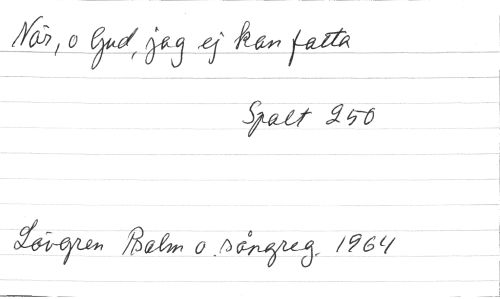 När, o Gud, jag ej kan fatta
Spalt 250
Lövgren Psalm o. sångreg. 1964